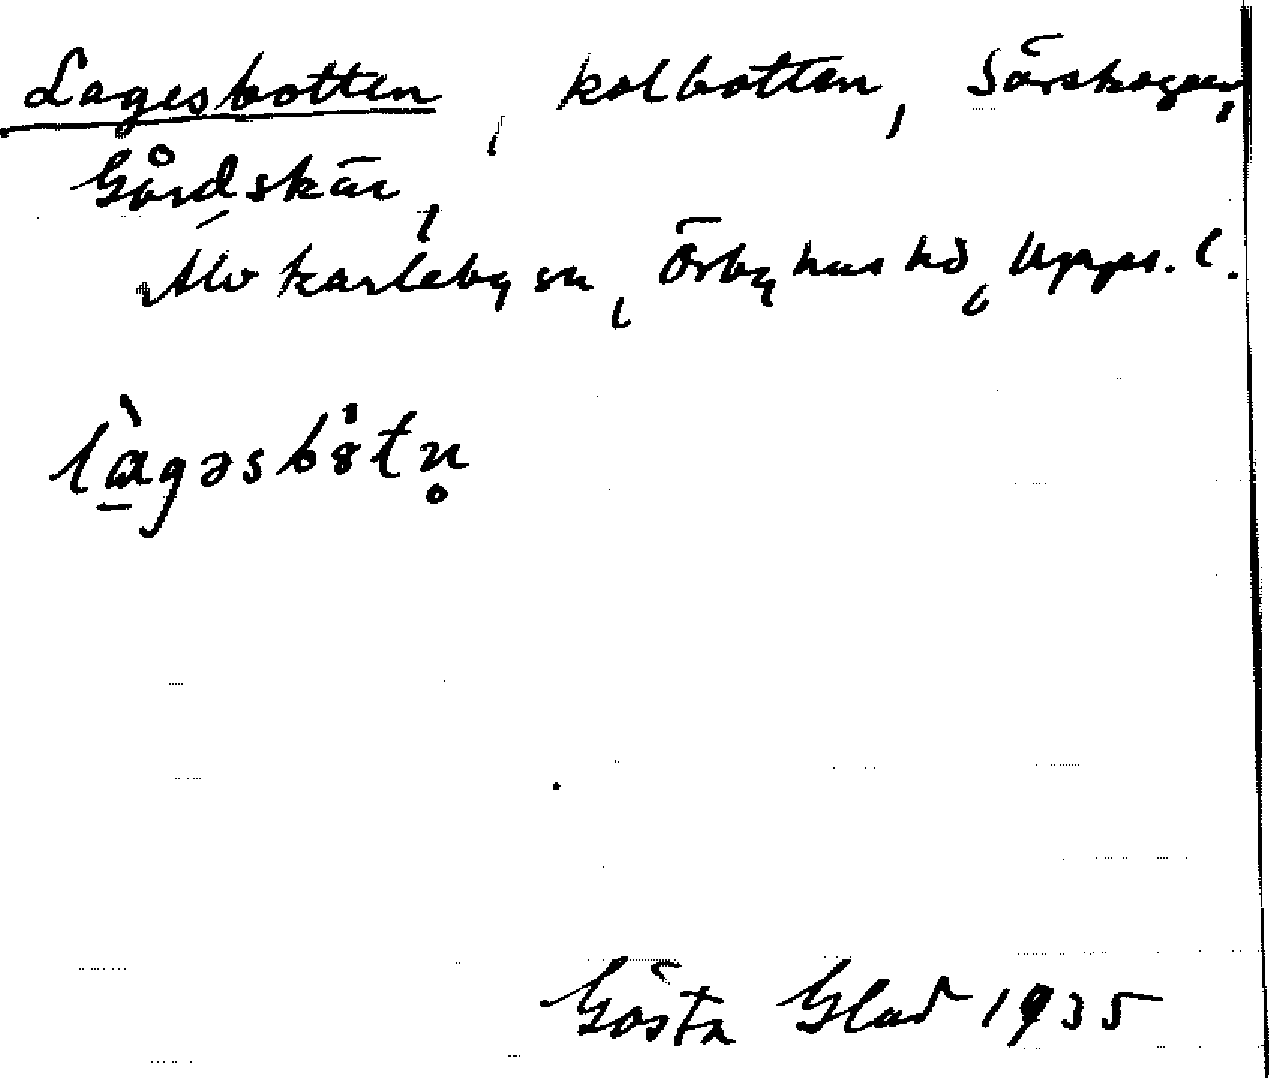 Lagesbotten, kolbotten, Sörskogen,
Gårdskär,
Älvkarleby sn, Örbyhus hd, Upps. l.
Gösta Glad 1935